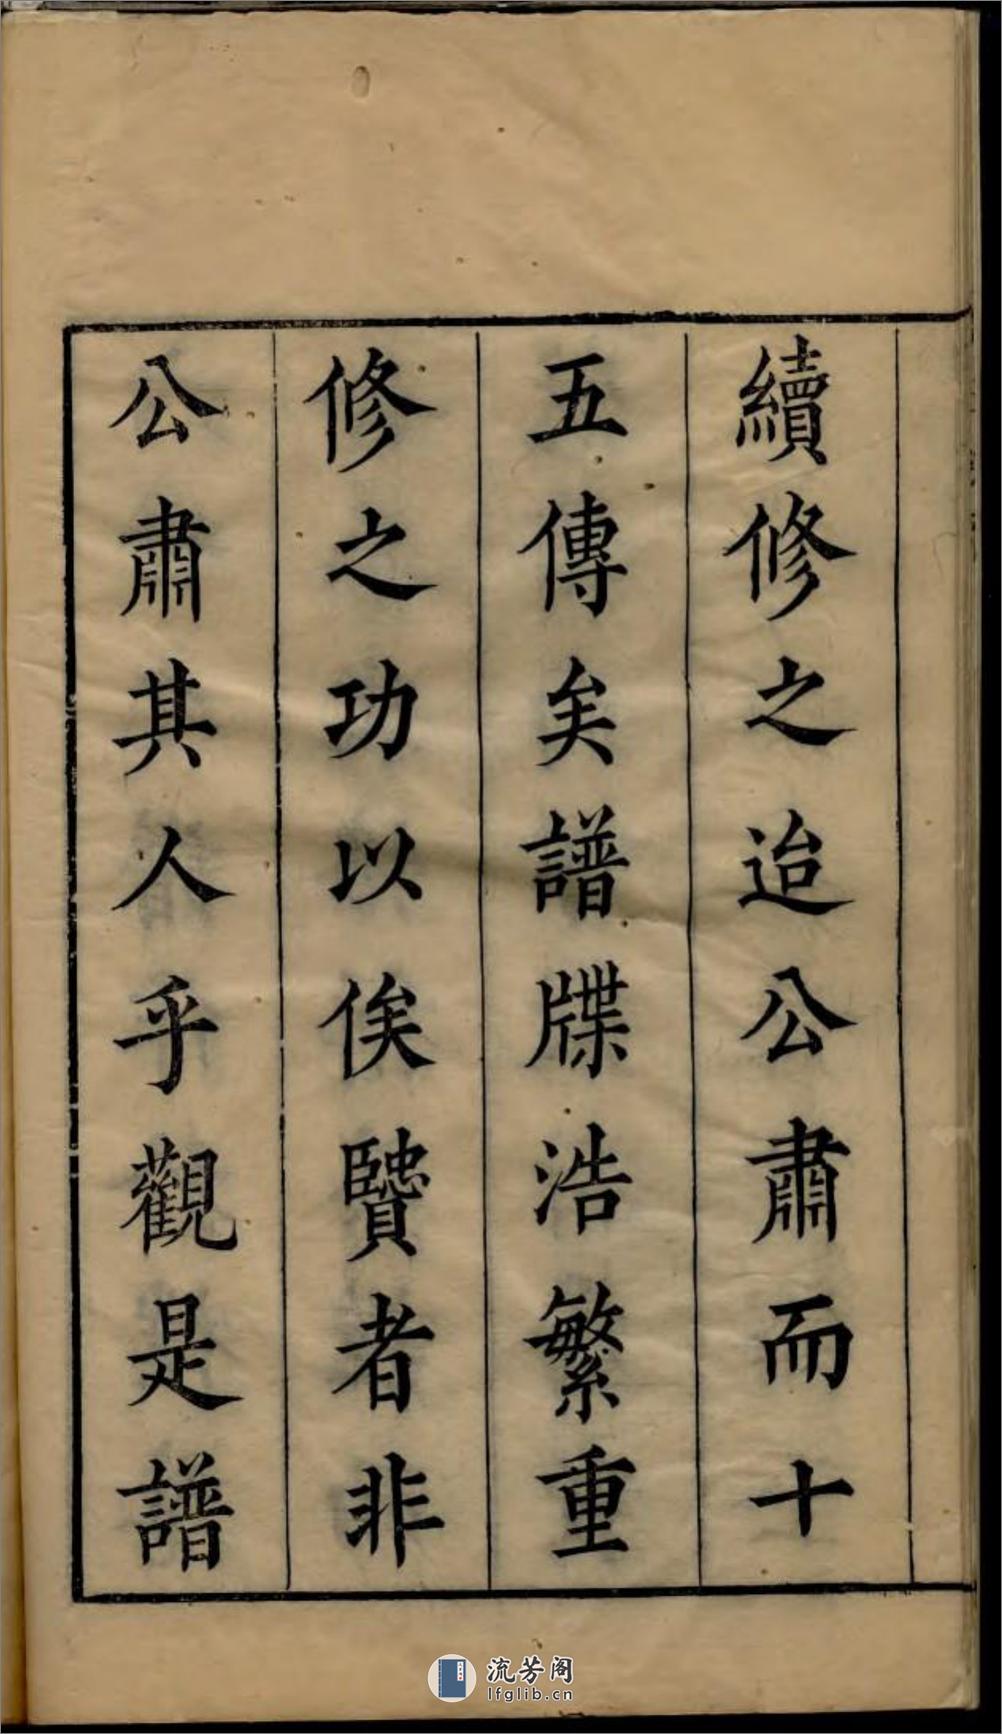 續修之迨公肅而十
五傳矣譜牒浩繁重
修之功以俟賢者非
公肅其人乎觀是譜
流芳阁
lfglib.cn